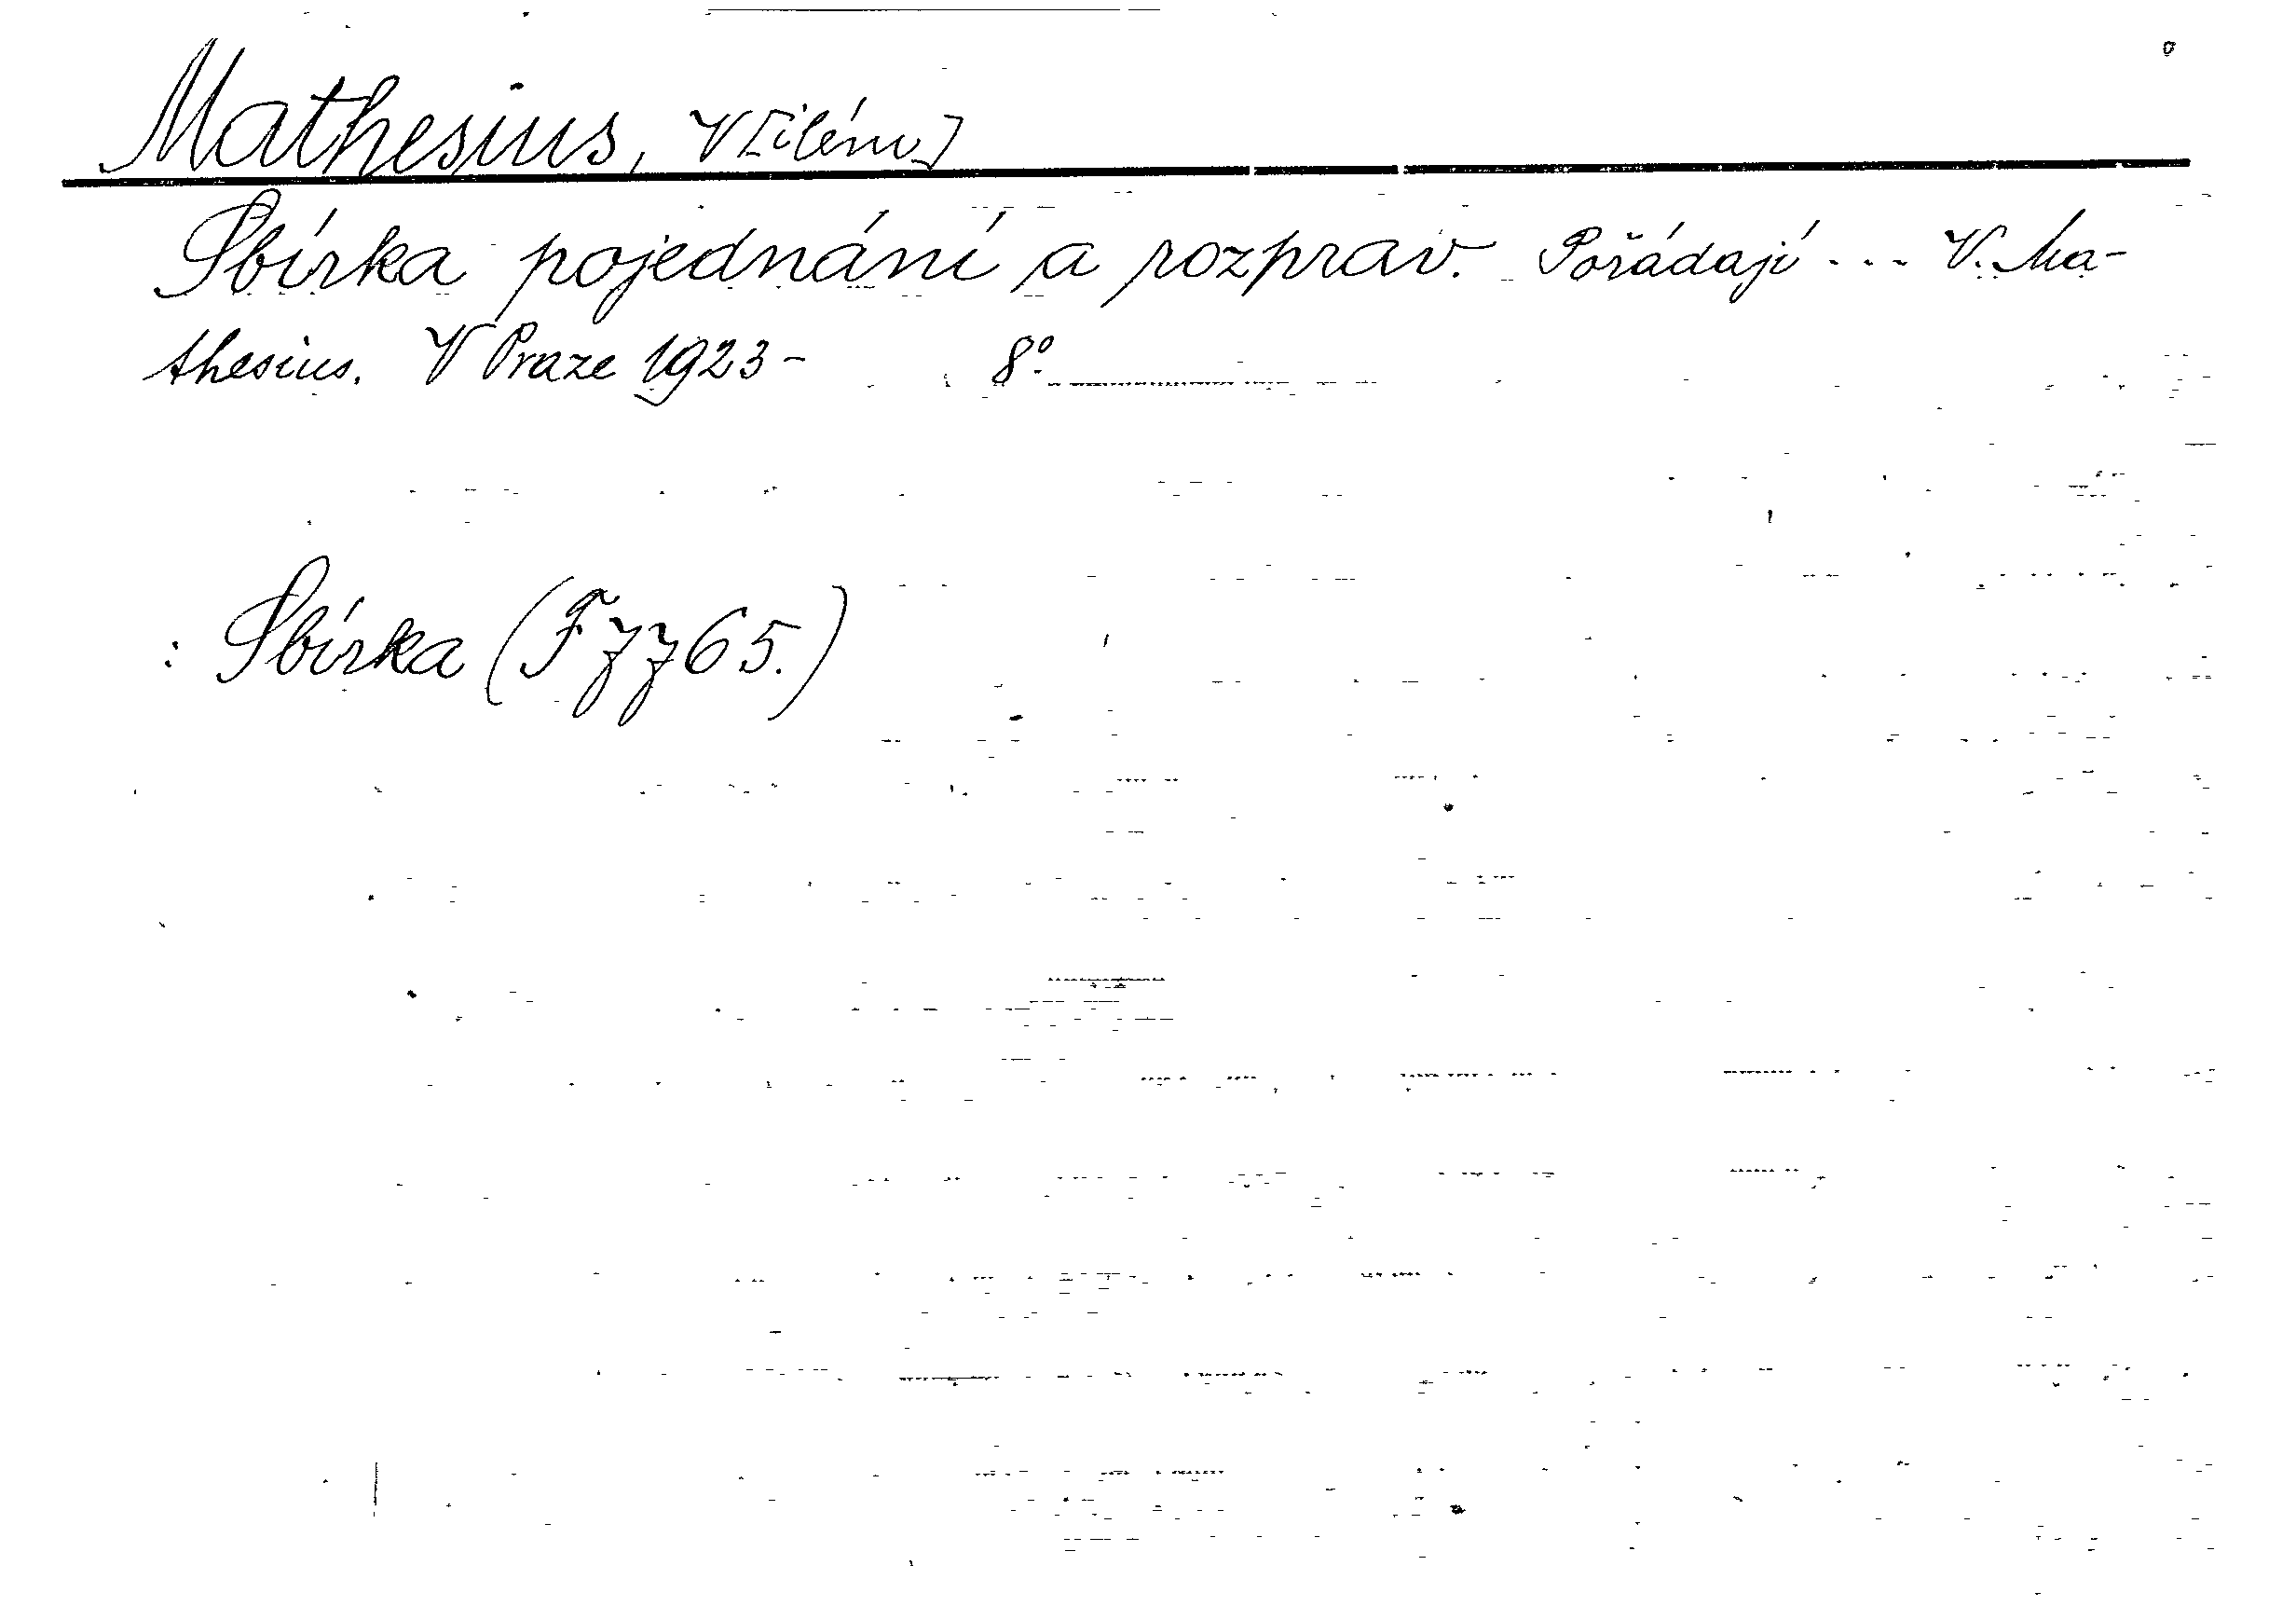 Mathesius, V[ilém]
Sbírka pojednání a rozprav. Pořádají ... V. Ma-
thesius. V Praze 1923- 8º.
: Sbírka (F 7765.)